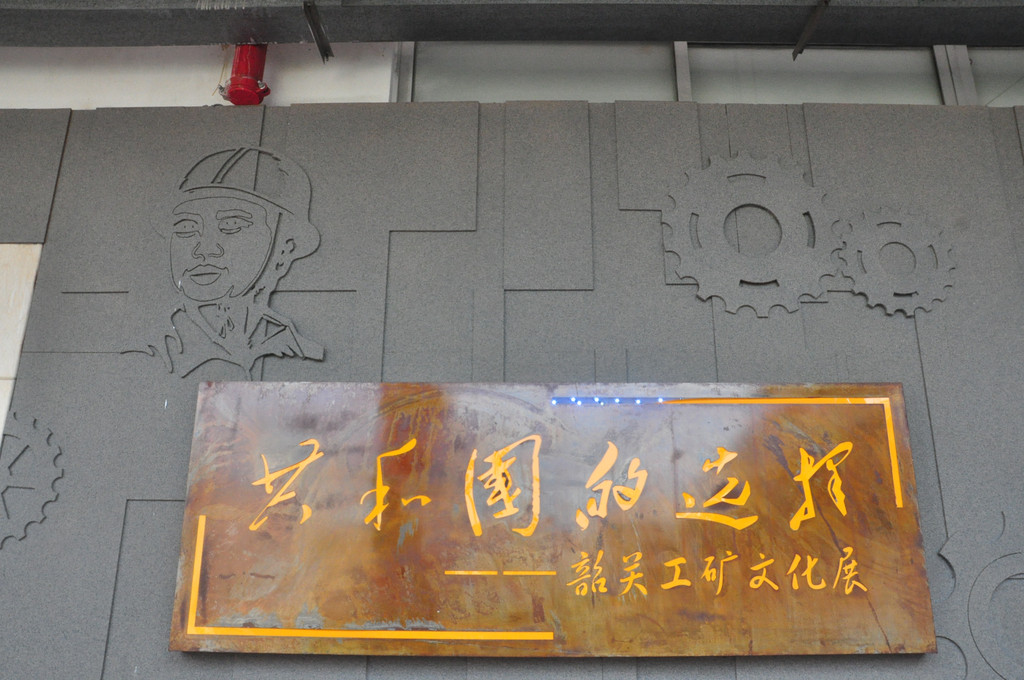 共和國的选择
——韶关工矿文化展